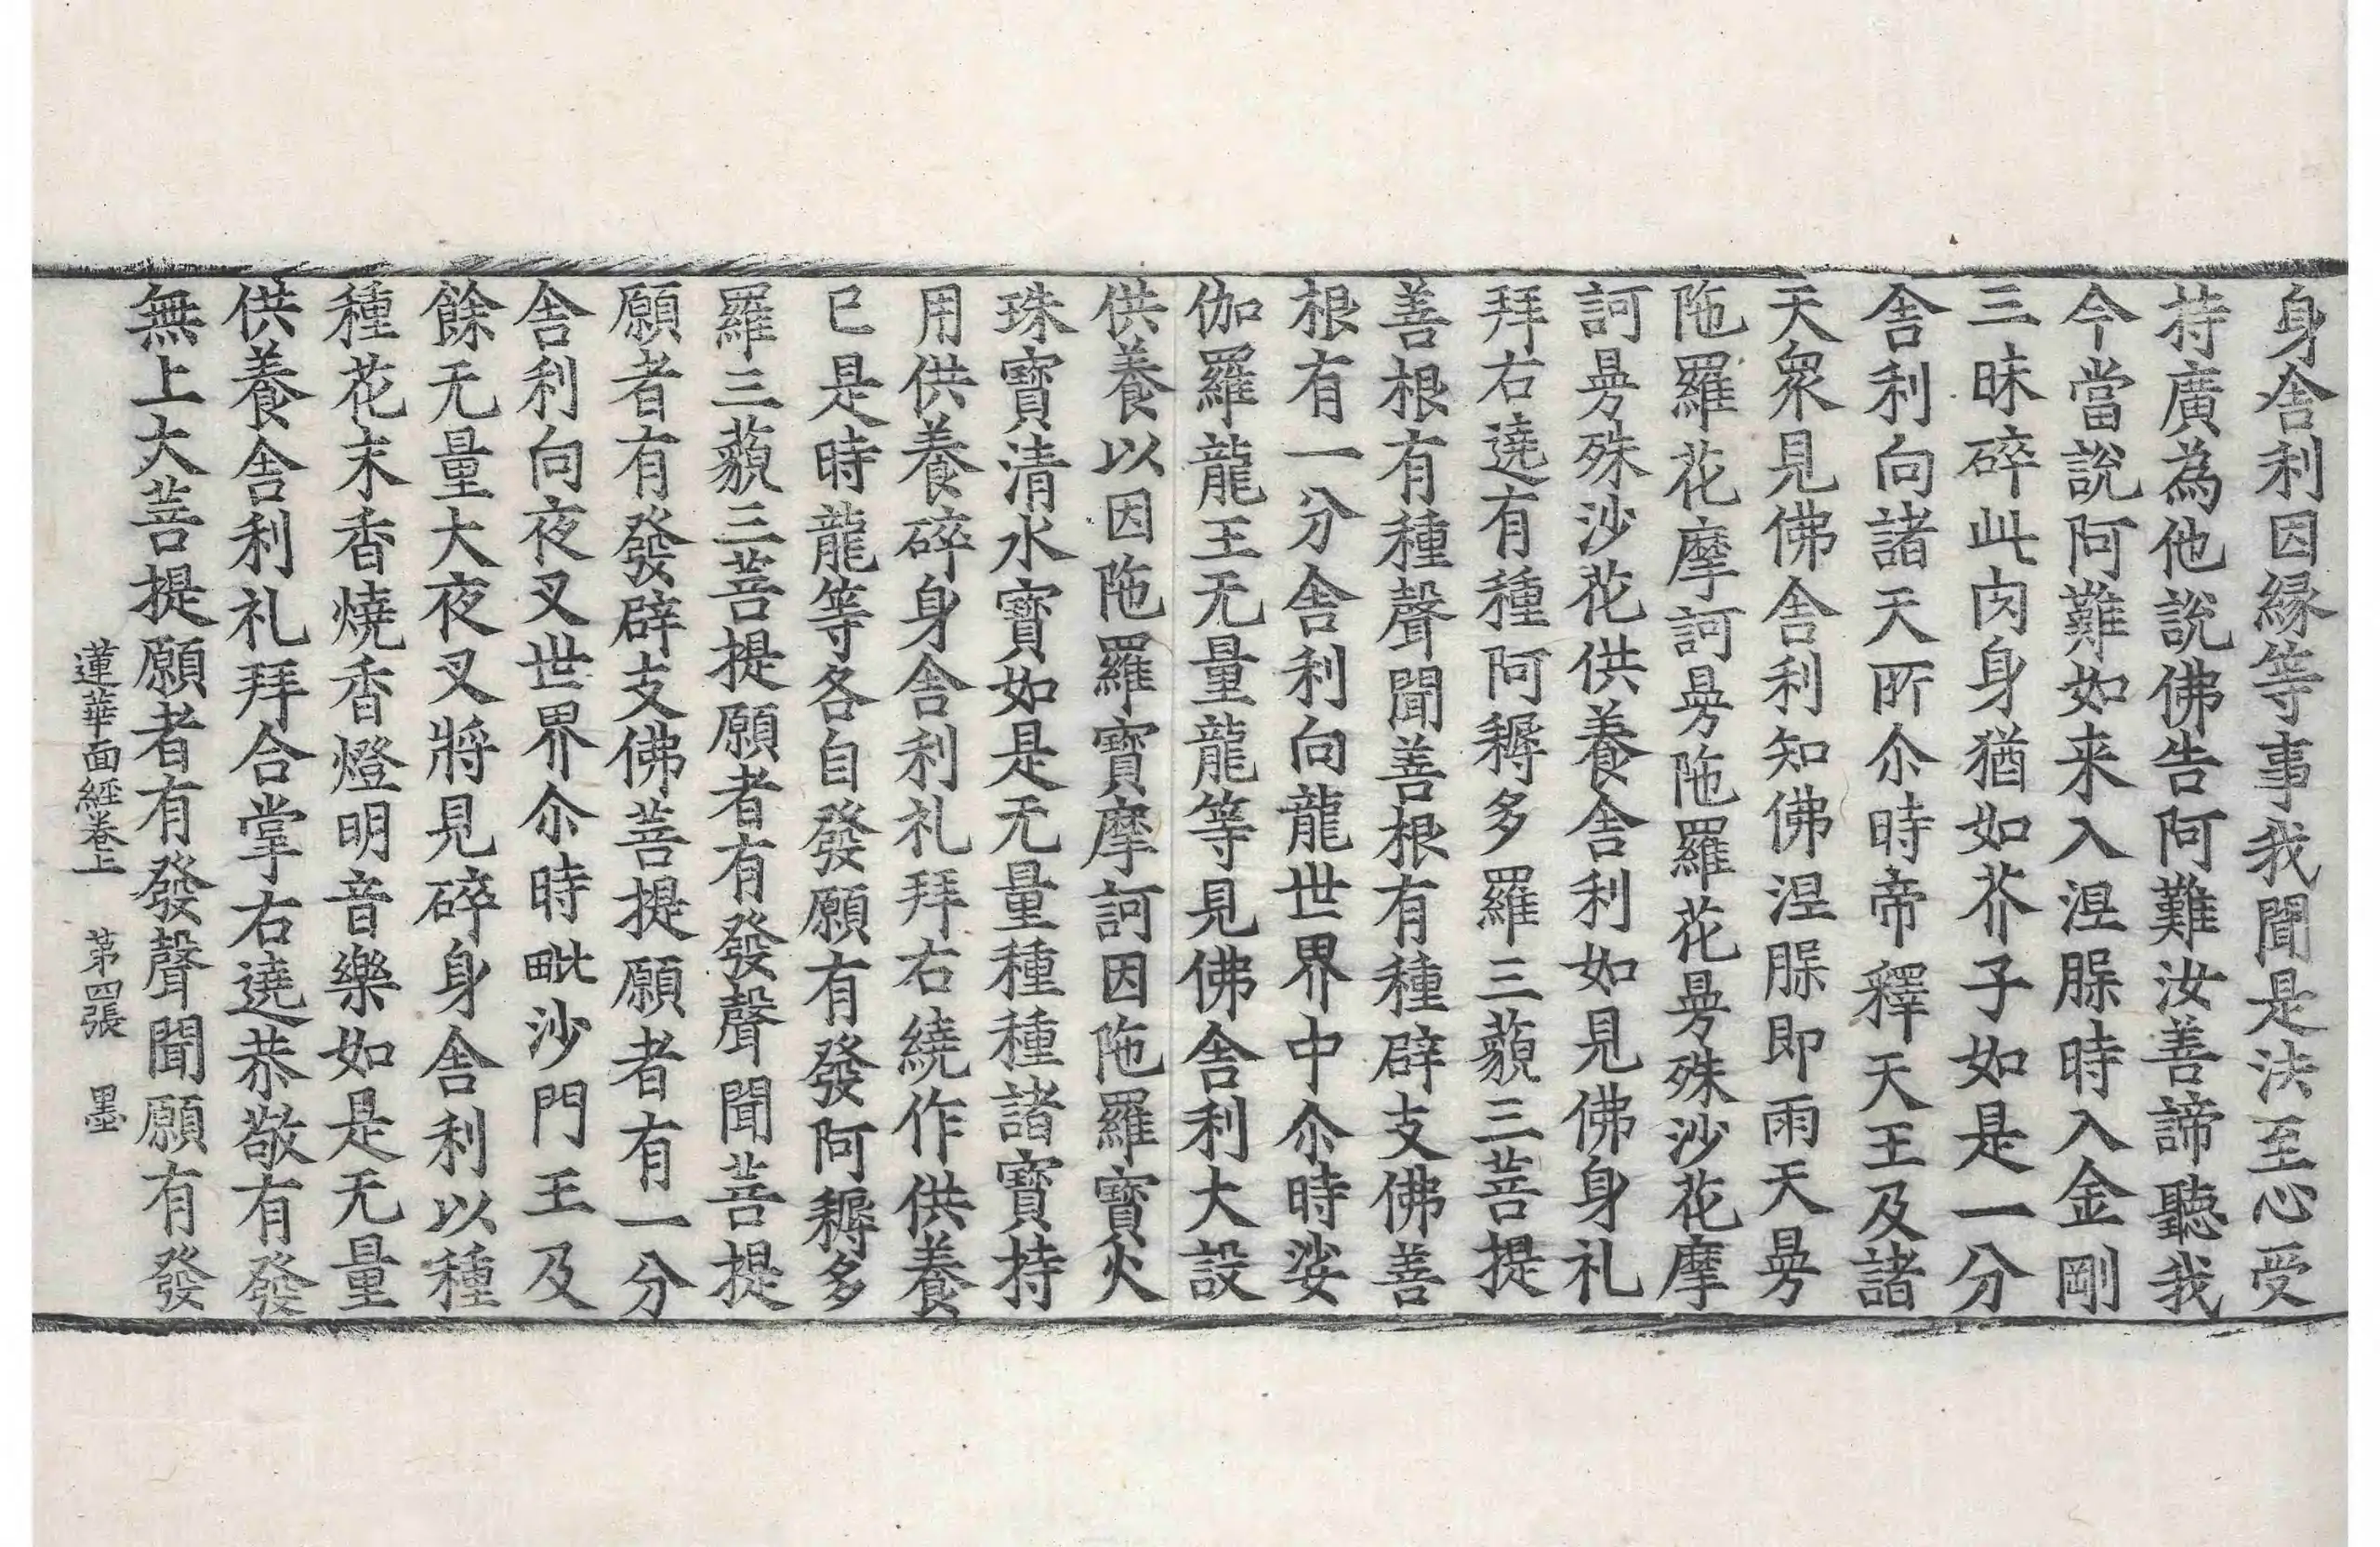 身舍利因縁等事我聞是法至心受
持廣為他說佛告阿難汝善諦聽我
今當說阿難如来入涅槃時入金剛
三昧碎此肉身猶如芥子如是一分
舍利向諸天所尒時帝釋天王及諸
天衆見佛舍利知佛涅槃即雨天曼
陁羅花摩訶曼陁羅花曼殊沙花摩
訶曼殊沙花供養舍利如見佛身礼
拜右遶有種阿耨多羅三藐三菩提
善根有種聲聞善根有種辟支佛善
根有一分舍利向龍世界中尒時娑
伽羅龍王无量龍等見佛舍利大設
供養以因陁羅寶摩訶因陁羅寶火
珠寶清水寶如是无量種種諸寶持
用供養碎身舍利礼拜右繞作供養
已是時龍等各自發願有發阿耨多
羅三藐三菩提願者有發聲聞菩提
願者有發辟支佛菩提願者有一分
舍利向夜叉世界尒時毗沙門王及
餘无量大夜叉將見碎身舍利以種
種花末香燒香燈明音樂如是无量
供養舍利礼拜合掌右遶恭敬有發
無上大菩提願者有發聲聞願有發
蓮華面經卷上 第四張 墨